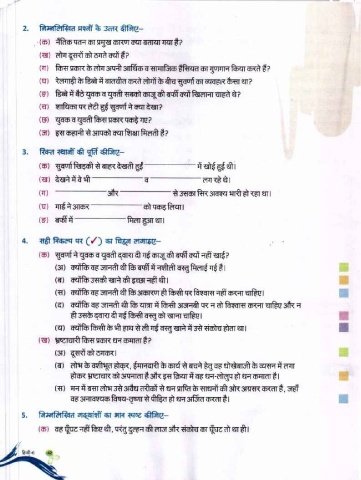 2. निम्नलिखित प्रश्नों के उत्तर दीजिए–
(क) नैतिक पतन का प्रमुख कारण क्या बताया गया है?
(ख) लोग दूसरों को ठगते क्यों हैं?
(ग) किस प्रकार के लोग अपनी आर्थिक व सामाजिक हैसियत का गुणगान किया करते हैं?
(घ) रेलगाड़ी के डिब्बे में बातचीत करते लोगों के बीच सुवर्णा का व्यवहार कैसा था?
(ङ) डिब्बे में बैठे युवक व युवती सबको काजू की बर्फी क्यों खिलाना चाहते थे?
(च) शायिका पर लेटी हुई सुवर्णा ने क्या देखा?
(छ) युवक व युवती किस प्रकार पकड़े गए?
(ज) इस कहानी से आपको क्या शिक्षा मिलती है?
3. रिक्त स्थानों की पूर्ति कीजिए–
(क) सुवर्णा खिड़की से बाहर देखती हुई में खोई हुई थी।
(ख) देखने में वे भी व लग रहे थे।
(ग) और से उसका सिर अवश्य भारी हो रहा था।
(घ) गार्ड ने आकर को पकड़ लिया।
(ङ) बर्फी में मिला हुआ था।
4. सही विकल्प पर (✓) का चिह्न लगाइए–
(क) सुवर्णा ने युवक व युवती द्वारा दी गई काजू की बर्फी क्यों नहीं खाई?
(अ) क्योंकि वह जानती थी कि बर्फी में नशीली वस्तु मिलाई गई है।
(ब) क्योंकि उसकी खाने की इच्छा नहीं थी।
(स) क्योंकि वह जानती थी कि अकारण ही किसी पर विश्वास नहीं करना चाहिए।
(द) क्योंकि वह जानती थी कि यात्रा में किसी अजनबी पर न तो विश्वास करना चाहिए और न
ही उसके द्वारा दी गई किसी वस्तु को खाना चाहिए।
(य) क्योंकि किसी के भी हाथ से ली गई वस्तु खाने में उसे संकोच होता था।
(ख) भ्रष्टाचारी किस प्रकार धन कमाता है?
(अ) दूसरों को ठगकर।
(ब) लोभ के वशीभूत होकर, ईमानदारी के कार्य से बचने हेतु वह धोखेबाजी के व्यसन में लगा
होकर भ्रष्टाचार को अपनाता है और इस क्रिया में वह धन-लोलुप हो धन कमाता है।
(स) मन में बसा लोभ उसे अवैध तरीकों से धन प्राप्ति के साधनों की ओर अग्रसर करता है, जहाँ
वह अनावश्यक विषय-तृष्णा से पीड़ित हो धन अर्जित करता है।
5. निम्नलिखित गद्यांशों का भाव स्पष्ट कीजिए–
(क) वह घूँघट नहीं किए थी, परंतु दुल्हन की लाज और संकोच का घूँघट तो था ही।